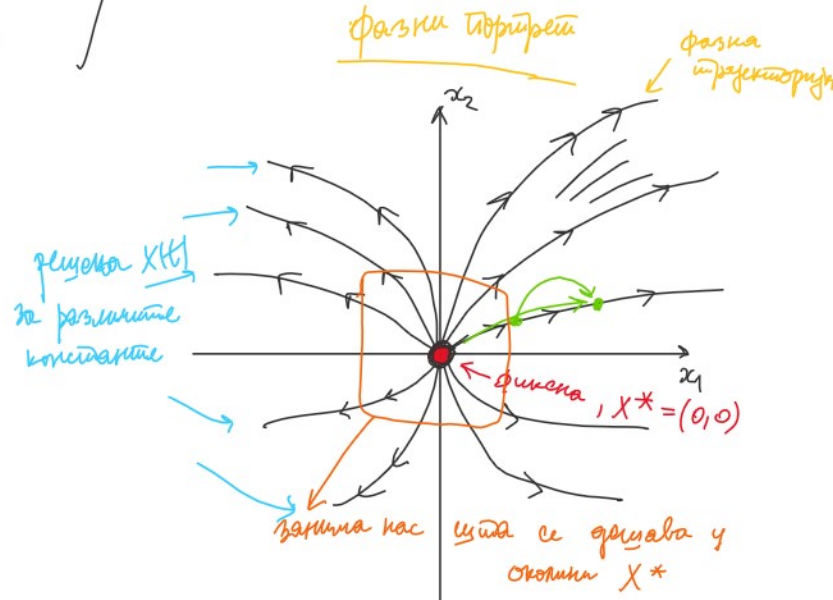 фазни портрет
фазна
трајекторија
x₂
решења X(t)
за различите
константе
x₁
фиксна, X* = (0,0)
занима нас шта се дешава у
околини X*